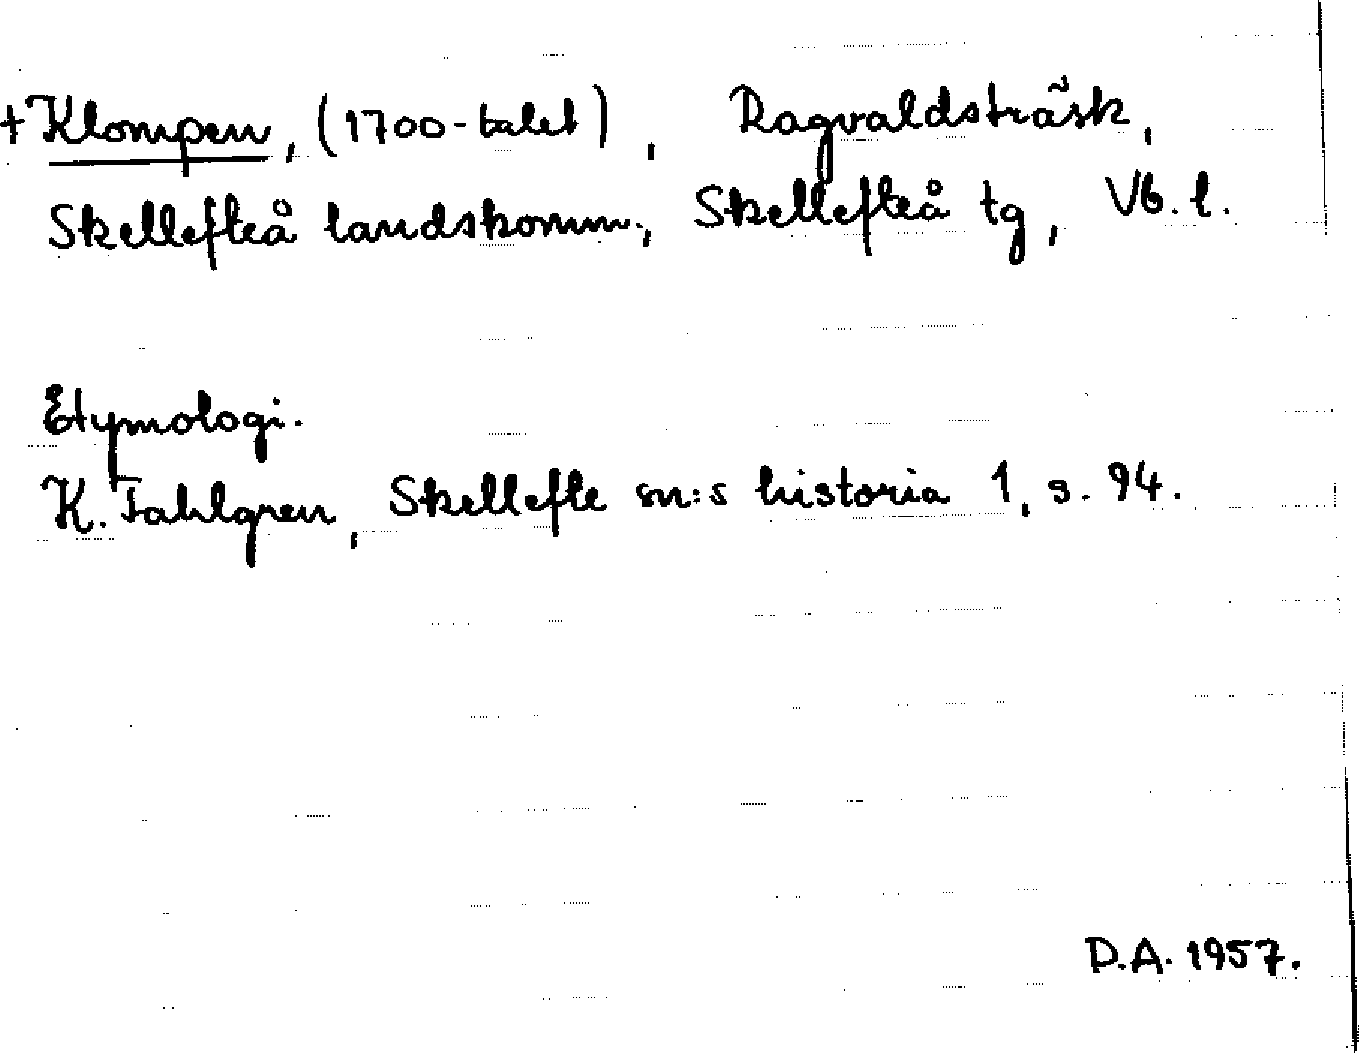 +Klompen, (1700-talet), Ragvaldsträsk,
Skellefteå landskomm., Skellefteå tg, Vb. l.
Etymologi.
K. Fahlgren, Skellefte sn:s historia 1, s. 94.
D.A. 1957.